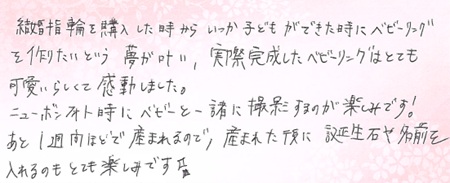 結婚指輪を購入した時からいつか子どもができた時にベビーリング
を作りたいという夢が叶い，実際完成したベビーリングはとても
可愛いらしくて感動しました。
ニューボンフォト時にベビーと一諸に撮影するのが楽しみです!
あと1週間ほどで産まれるので，産まれた後に誕生石や名前を
入れるのもとても楽しみです